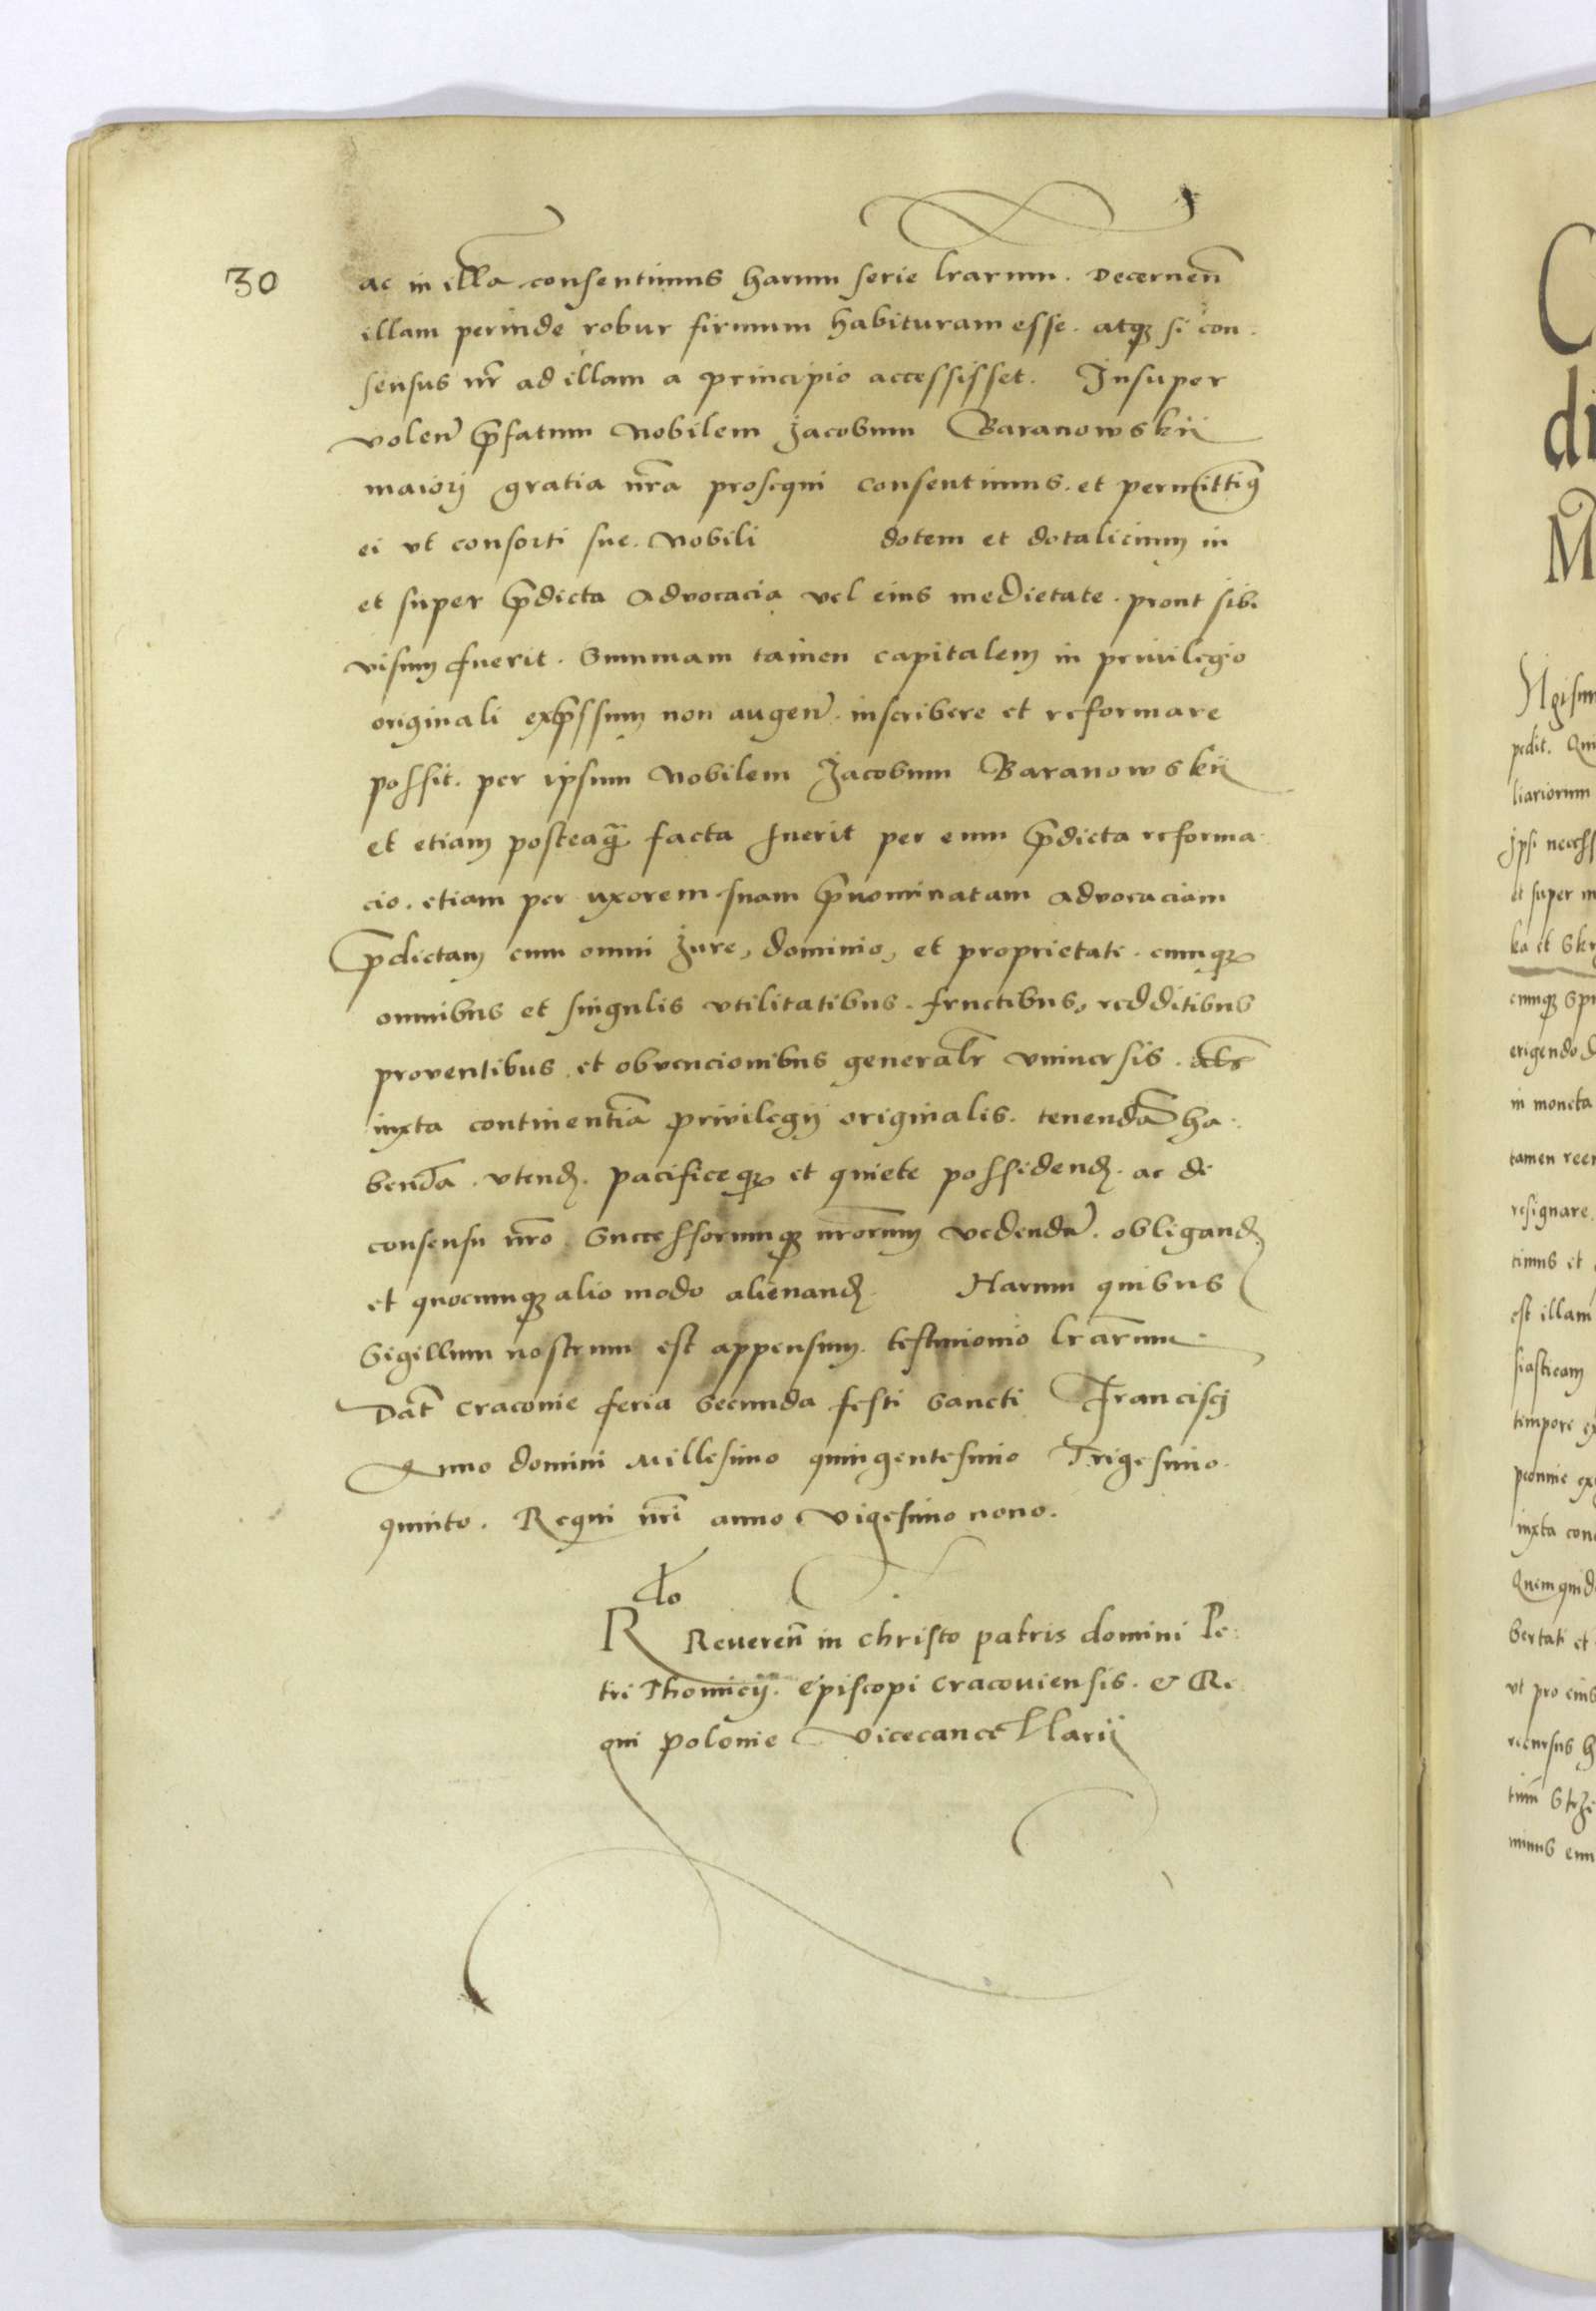 30
ac in illa consentimus harum serie lrarum. Decernen
illam perinde robur firmum habituram esse. atq si con.
sensus nr ad illam a principio accessisset. Insuper
volen pfatum Nobilem Jacobum Baranowskij
maiorj gratia nra prosequi consentimus. et permittimq
ei vt consorti sue. Nobili dotem et dotalicium in
et super pdicta Advocacia vel eius medietate. prout sibi
visum fuerit. Summam tamen capitalem in privilegio
originali expssum non augen. inscribere et reformare
possit. per ipsum Nobilem Jacobum Baranowskij
et etiam posteaq facta fuerit per eum pdicta reforma.
cio. etiam per uxorem suam pnominatam Advocaciam
pdictam cum omni Jure, dominio, et proprietate. cumq
omnibus et singulis vtilitatibus. fructibus, redditibus
proventibus. et obvencionibus generalr vniversis.
iuxta continentia privilegij originalis. tenenda ha.
benda. vtend. pacificeq et quiete possidend. ac de
consensu nro. Successorumq nrorum vedend. obligand
et quocumq alio modo alienand. Harum quibus
Sigillum nostrum est appensum. testimonio lrarum.
Dat Cracovie feria Secunda festi Sancti Franciscj
Anno domini Millesimo quingentesimo Trigesimo.
quinto. Regni nri anno Vigesimo nono.
Rdo Reveren in christo patris domini Pe.
tri Thomicij. Episcopi Cracoviensis. & Re.
gni Polonie Vicecancellarij
pedit.
liariorum
et super
erigendo
in moneta
tamen
resignare.
est illam
tempore
vt pro